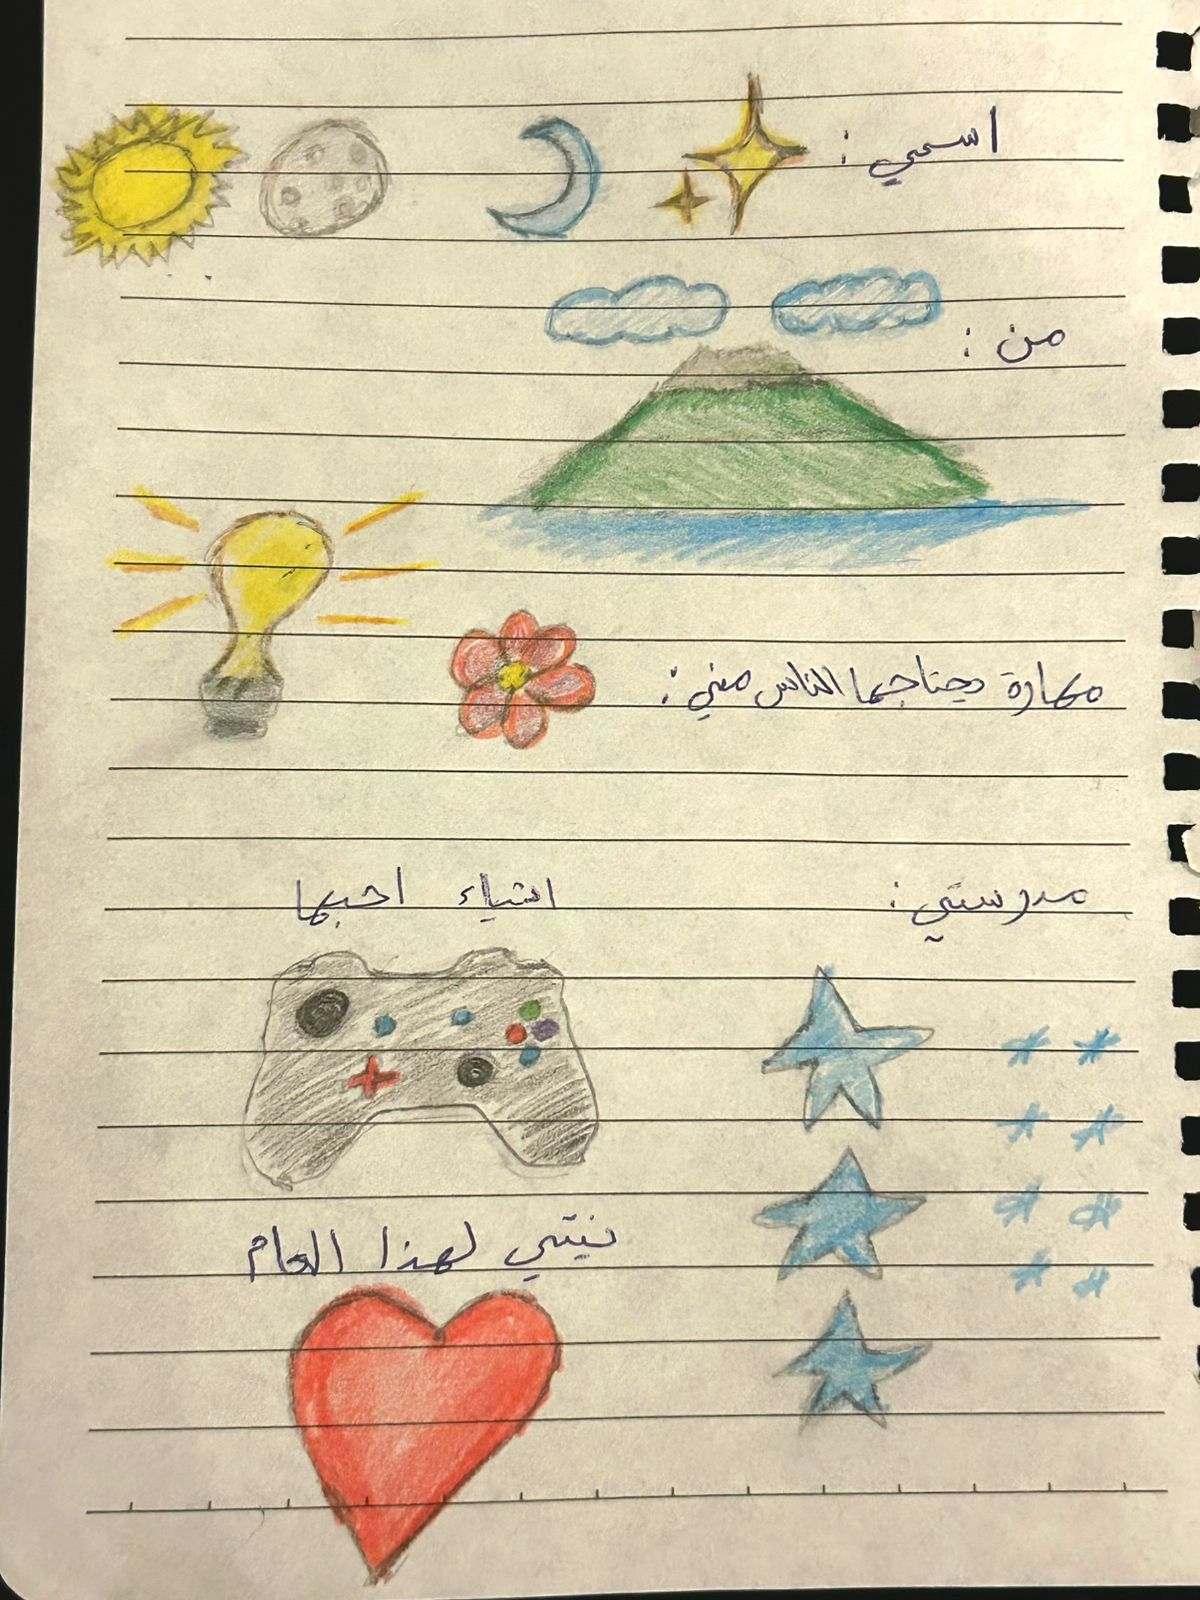 اسمي :
من :
مهارة يحتاجها الناس مني :
مدرستي :
اشياء احبها
نيتي لهذا العام